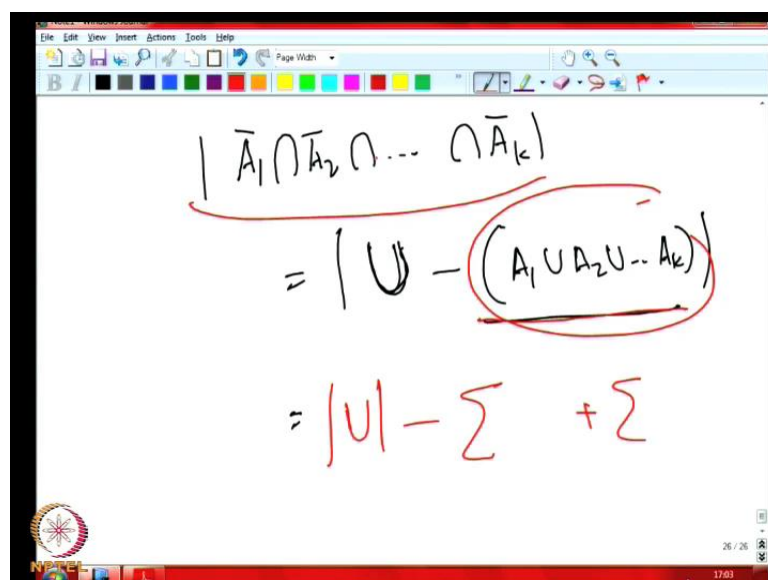 File Edit View Insert Actions Tools Help
Page Width
B I
| A̅₁ ∩ A̅₂ ∩ ... ∩ A̅ₖ |
= | U - (A₁ ∪ A₂ ∪ -- Aₖ) |
= |U| - Σ + Σ
26 / 26
NPTEL
17:03